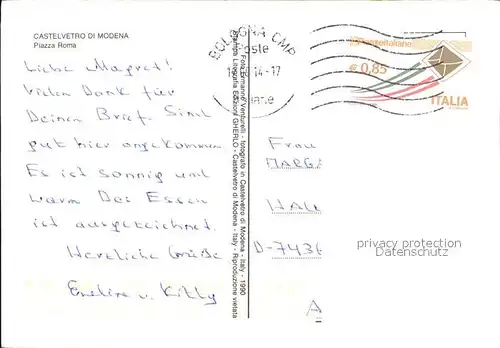 CASTELVETRO DI MODENA
Piazza Roma
Liebe Magret!
Vielen Dank für
Deinen Brief. Sind
gut hier angekommen
Es ist sonnig und
warm Das Essen
ist ausgezeichnet.
Herzliche Grüße
Eveline u. Killy
Foto Ermanno Venturelli - fotografo in Castelvetro di Modena - Italy - 1990
Stampa Litografia Edizioni GHERLO - Castelvetro di Modena - Italy - Riproduzione vietata
BOLOGNA CMP
14-17
Posteitaliane
€ 0,85
ITALIA
Frau
MARGA
HALL
D-7436
privacy protection
Datenschutz
A